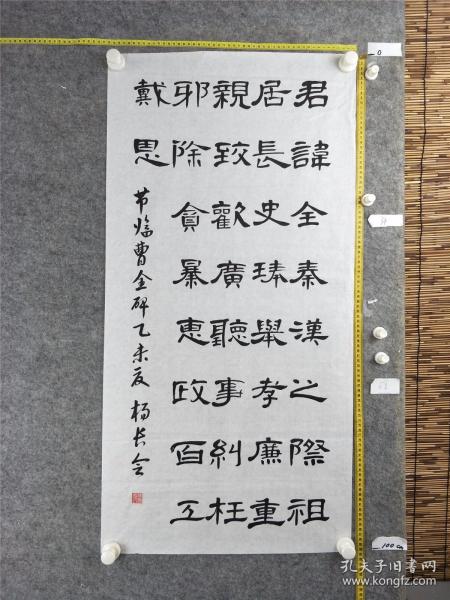 君諱全秦漢之際祖
居長史舉孝廉重
親致歡廣聽事糾枉
邪除貪暴惠政百工
戴恩
节临曹全碑乙未夏 杨长会
0
100cm
孔夫子旧书网
www.kongfz.com